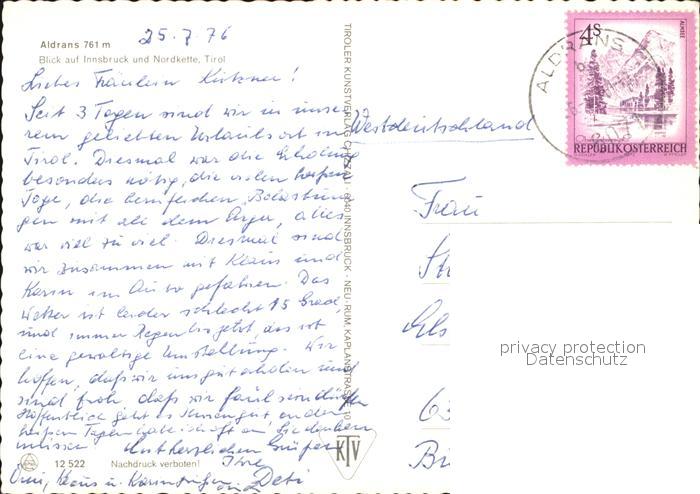 25.7.76
Aldrans 761 m
Blick auf Innsbruck und Nordkette, Tirol
Liebes Fräulein
Seit 3 Tagen sind wir in unse-
rem geliebten Urlaubsort in
Tirol. Diesmal war die Erholung
besonders nötig, die vielen heißen
Tage, die beruflichen Belastun-
gen mit all dem Ärger, alles
war viel zu viel. Diesmal sind
wir zusammen mit Klaus und
Karin im Auto gefahren. Das
Wetter ist leider schlecht 15 Grad
und immer Regen bis jetzt, das ist
eine gewaltige Umstellung. Wir
hoffen, daß wir uns gut erholen und
sind froh daß wir faul sein dürfen
Hoffentlich geht es Ihnen gut an den
heißen Tagen habe ich oft an Sie denken
müssen Mit herzlichen Grüßen
Ihre
Deti
Omi, Klaus u. Karin grüßen
12 522 Nachdruck verboten!
TIROLER KUNSTVERLAG CHIZZALI · 6040 INNSBRUCK - NEU-RUM, KAPLANSTRASSE 10
KTV
Westdeutschland
Frau
St
Els
63
Bi
4S
ALMSEE
REPUBLIK ÖSTERREICH
ALDRANS
privacy protection
Datenschutz